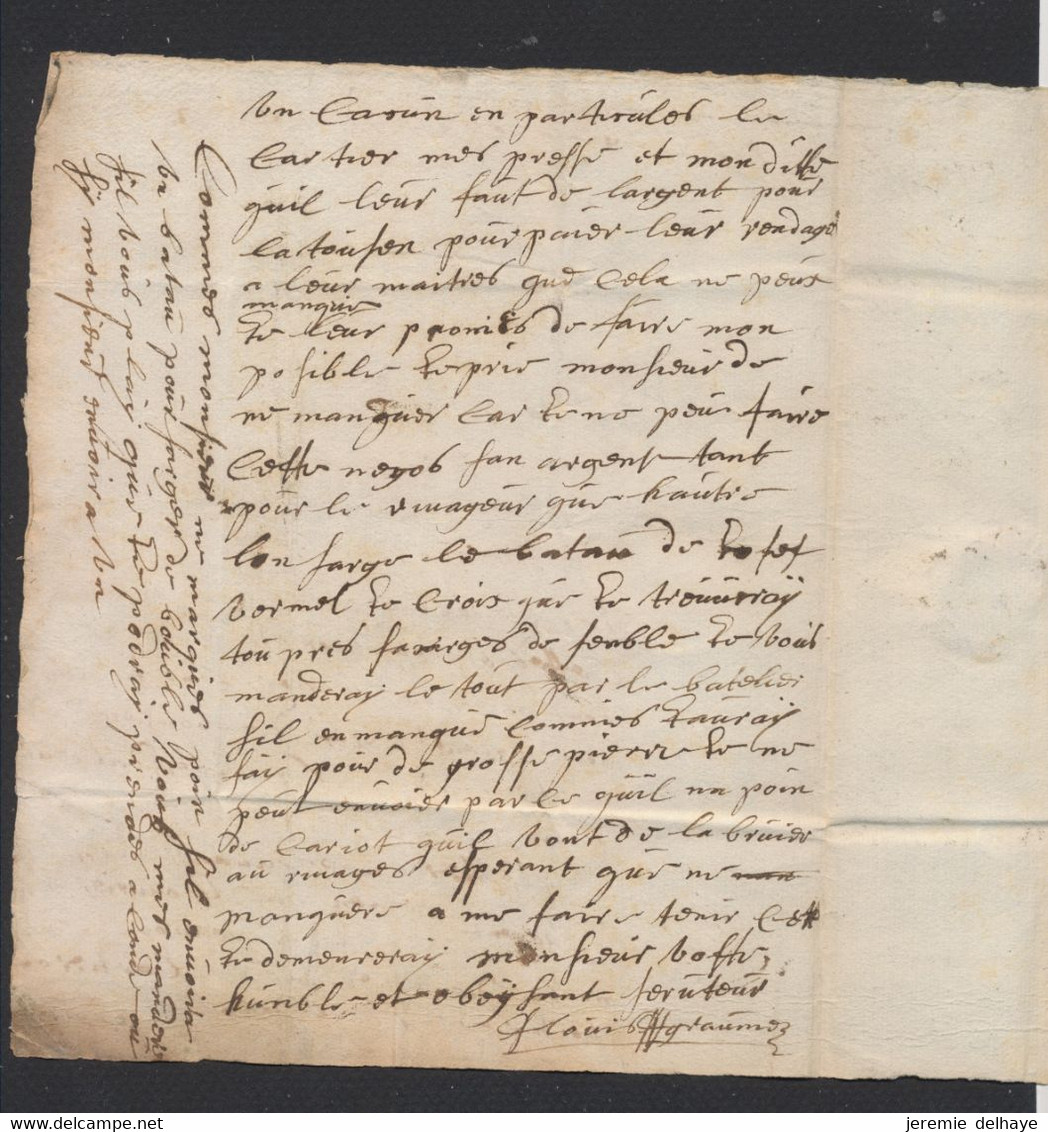 un Cacun en particules le
Cartier mes presse et mon ditte
quil leur faut de largent pour
la tousen pour paier leur rendage
a leur maitres que Cela ne peus
manquer
te leur promes de faire mon
posible te prie monsieur de
ne manquer Car te ne peu faire
Cette negos san argent tant
pour le rivageur que hautre
lon sarge le batau de Joses
vormel te Crois que te trouveray
tou pres sarges de senble te vous
manderay le tout par le batelier
sil en manque Commes tauray
fay pour de grosse pierre te ne
peut envoier par ce quil na poin
de Cariot quil vont de la bruier
au rivages esperant que ne
manquere a me faire tenir Cet
te demeureray monsieur votte
humble et obeysant serviteur
louis graumez
Commes monsieur ne manques poin sil envoira
un batau pour sarger de vous me mander
sil vous play que te podray prendes a
sy monsieur envoira un
jeremie delhaye